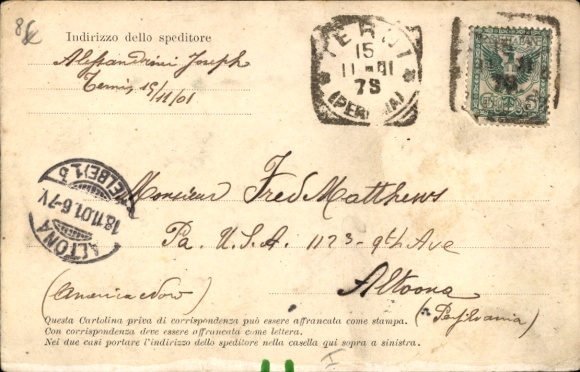 8
Indirizzo dello speditore
Alessandrini Joseph
Terni, 15/11/01
TERNI
15
11-01
7S
(PERUGIA)
5
ALTONA
18.11.01.6-7V.
Monsieur Fred Matthews
Pa. U.S.A. 1123-9th Ave
Altoona
(America Nord)
(Pensilvania)
Questa Cartolina priva di corrispondenza può essere affrancata come stampa.
Con corrispondenza deve essere affrancata come lettera.
Nei due casi portare l'indirizzo dello speditore nella casella qui sopra a sinistra.